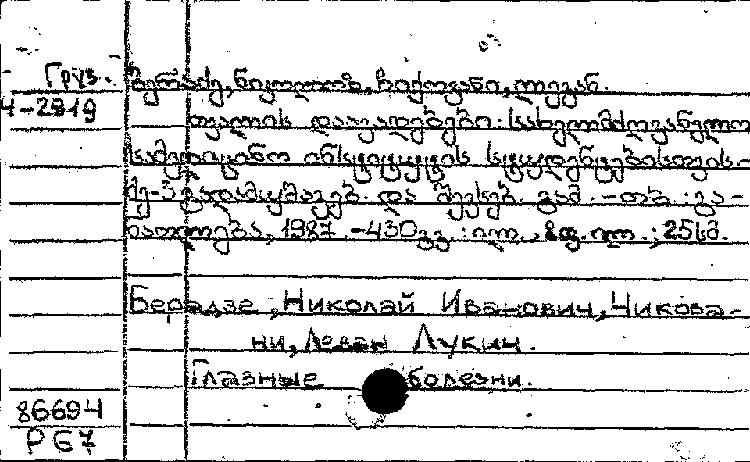 Груз. ბერაძე, ნიკოლოზ, ჩიქოვანი, ლევან.
4-2819 თვალის დაავადებები: სახელმძღვანელო
სამედიცინო ინსტიტუტის სტუდენტებისთვის.-
მე-3 გადამუშავებ. და შევსებ. გამ. - თბ.: გა-
ნათლება, 1987. -430გვ.: ილ., 8ფ. ილ.; 25სმ.
Берадзе, Николай Иванович, Чикова-
ни, Леван Лукич.
Глазные болезни.
86694
Р67